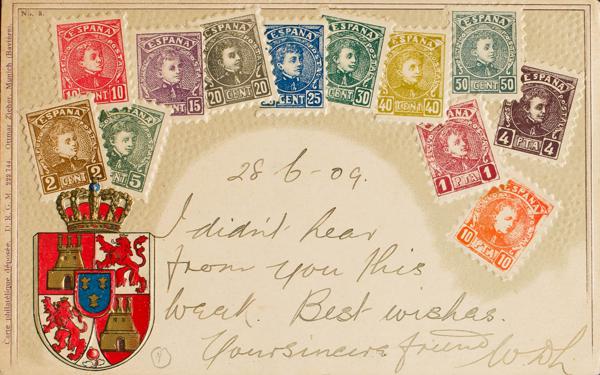 No. 8.
ESPAÑA
10 CENT 10
ESPAÑA
CENT 15
ESPAÑA
20 CENT 20
ESPAÑA
CENT 25
ESPAÑA
CENT 30
ESPAÑA
40 CENT 40
ESPAÑA
50 CENT 50
ESPAÑA
4 PTA 4
ESPAÑA
2 CENT 2
ESPAÑA
CENT 5
ESPAÑA
1 PTA 1
ESPAÑA
10 PTA 10
28-6-09.
I didn't hear
from you this
week. Best wishes.
Your sincere friend
Carte philatélique déposée. D. R. G. M. 222 744. Ottmar Zieher, Munich (Bavière).